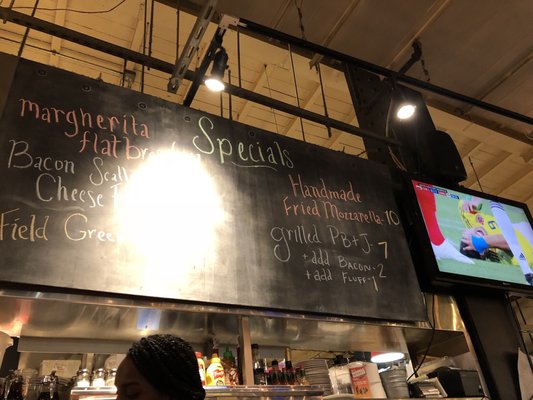 Specials
margherita
flatbread
Bacon Scall
Cheese
Field Gree
Handmade
Fried Mozzarella-10
grilled PB+J-7
+add Bacon-2
+add Fluff-1